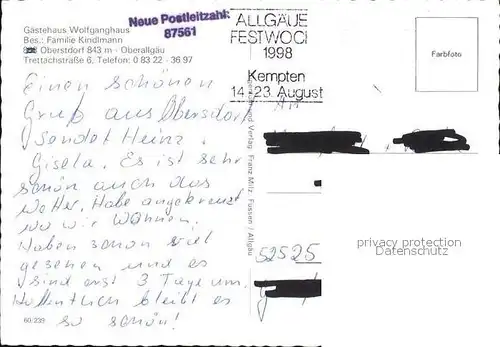 Gästehaus Wolfganghaus
Bes.: Familie Kindlmann
Oberstdorf 843 m - Oberallgäu
Trettachstraße 6, Telefon: 0 83 22 - 36 97
Neue Postleitzahl:
87561
ALLGÄUE
FESTWOCH
1998
Kempten
14.-23. August
Farbfoto
Einen schönen
Gruß aus Obersdorf
sendet Heinz.
Gisela. Es ist sehr
schön auch das
Wetter. Habe angekreuzt
wo wir wohnen.
Haben schon viel
gesehen und es
sind erst 3 Tage um.
Hoffentlich bleibt es
so schön!
60 233
Verlag Franz Milz, Füssen / Allgäu
An
52525
privacy protection
Datenschutz